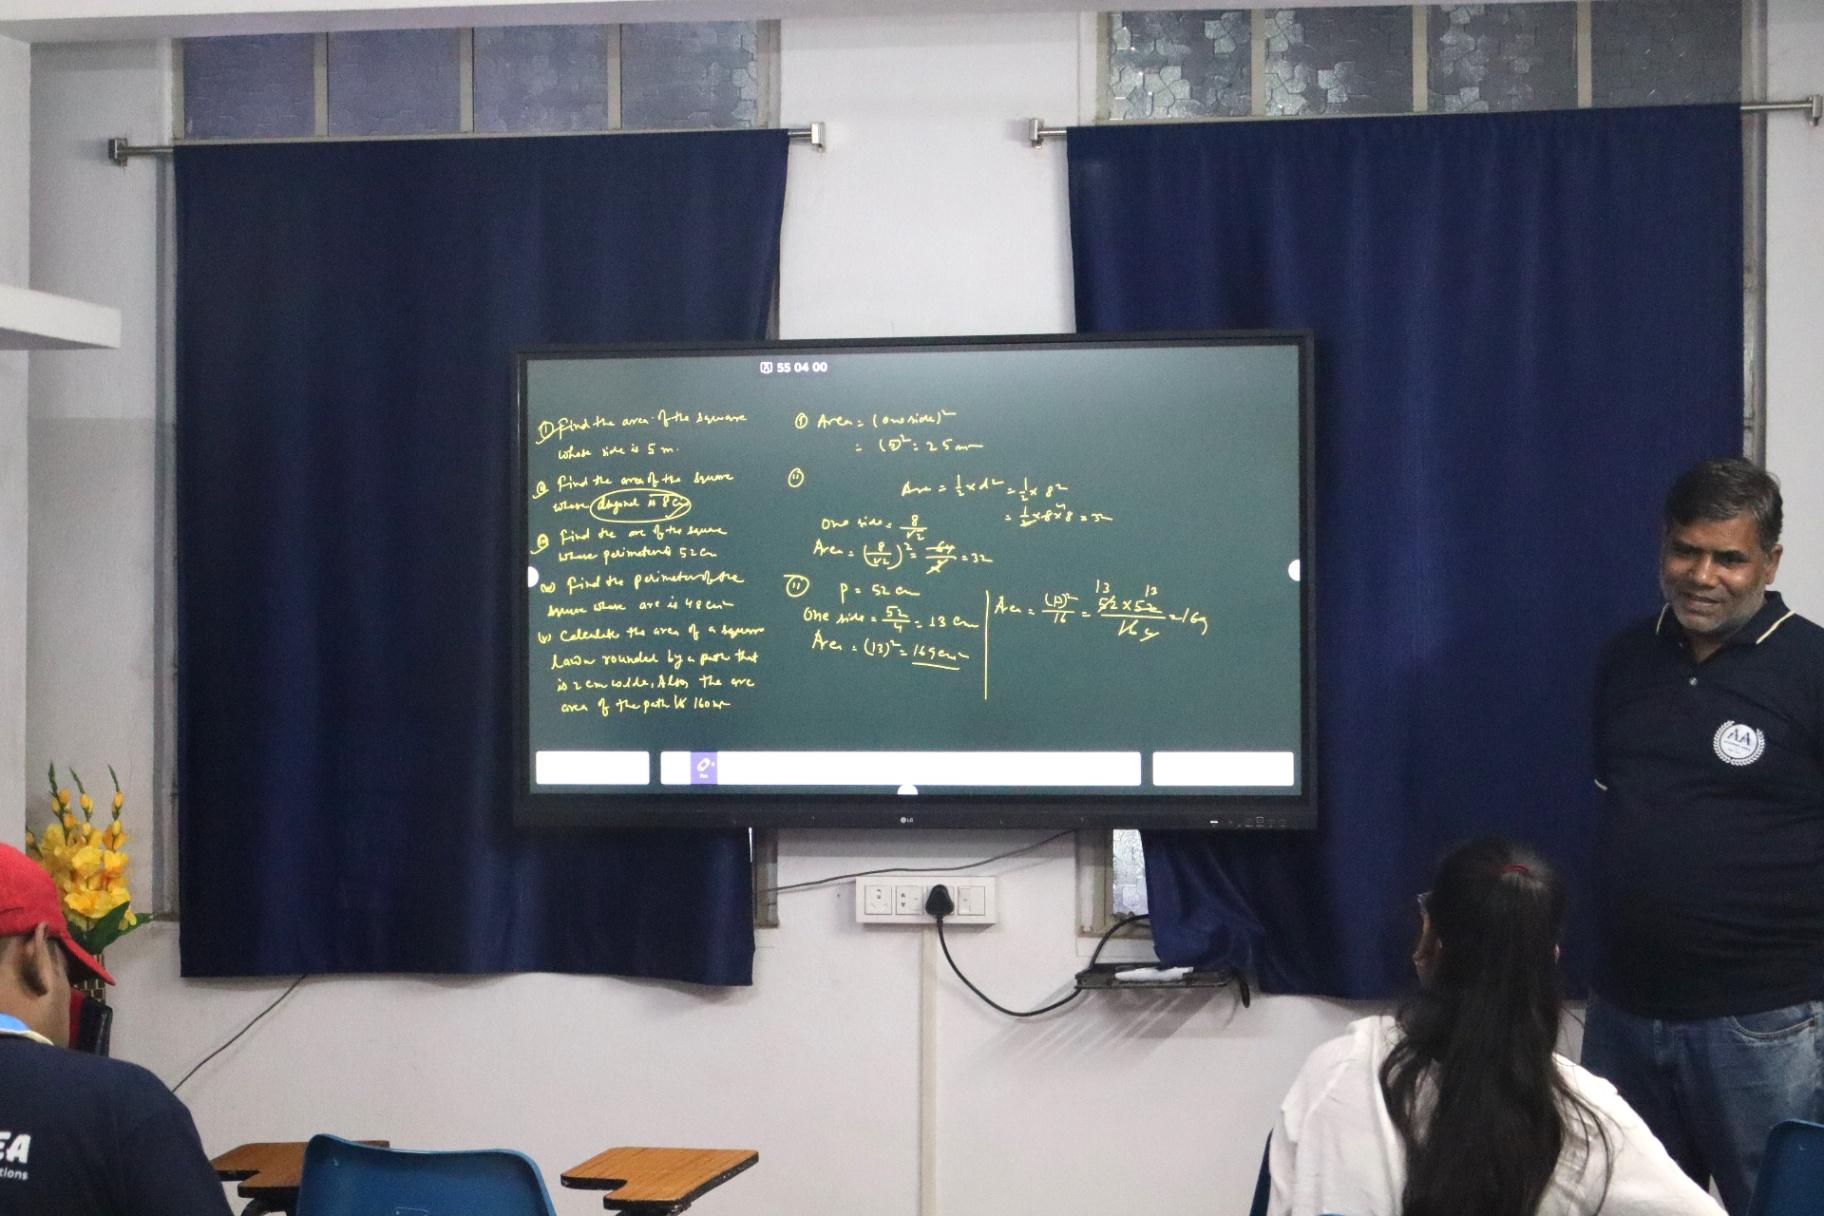 55 04 00
① Find the area of the square
whose side is 5 m.
② Find the area of the square
whose diagonal is 8 cm
Find the are of the square
whose perimeter is 52 cm
(iv) Find the perimeter of the
square whose are is 48 cm²
(v) Calculate the area of a square
lawn rounded by a path that
is 2 cm wide, Also, the are
area of the path is 160 m²
① Area = (one side)²
= (5)² = 25 m²
(ii)
Area = 1/2 × d² = 1/2 × 8²
= 1/2 × 8 × 8 = 32
4
One side = 8/√2
Area = (8/√2)² = 64/2 = 32
P = 52 cm
One side = 52/4 = 13 cm
Area = (13)² = 169 cm²
13 13
Area = (P)²/16 = 52 × 52/16 = 169
4
Pen
LG
AA
EA
tions